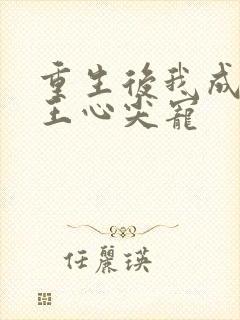 重生後我成
王心尖寵
任麗瑛